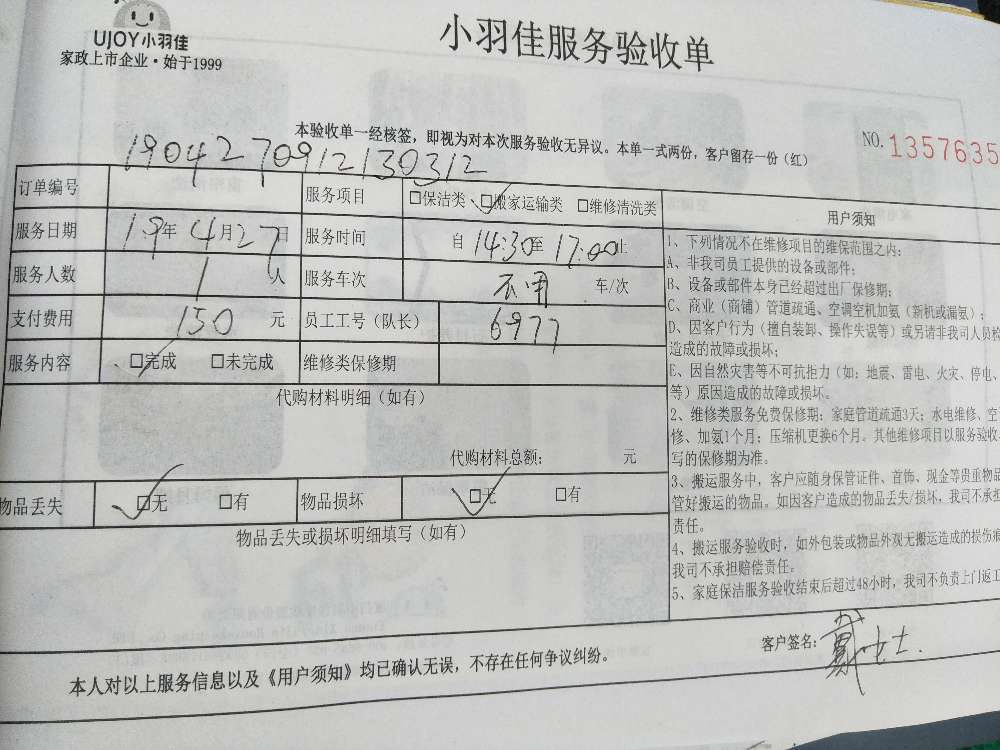 UJOY小羽佳
家政上市企业·始于1999
小羽佳服务验收单
本验收单一经核签，即视为对本次服务验收无异议。本单一式两份，客户留存一份（红）
NO. 1357635
190427091213 0312
订单编号 服务项目 □保洁类 □搬家运输类 □维修清洗类
服务日期 19年4月27日 服务时间 自14:30至17:00止
服务人数 1人 服务车次 不用 车/次
支付费用 150元 员工工号（队长） 6977
服务内容 □完成 □未完成 维修类保修期
代购材料明细（如有）
代购材料总额： 元
物品丢失 □无 □有 物品损坏 □无 □有
物品丢失或损坏明细填写（如有）
用户须知
1、下列情况不在维修项目的维保范围之内：
A、非我司员工提供的设备或部件；
B、设备或部件本身已经超过出厂保修期；
C、商业（商铺）管道疏通、空调空机加氨（新机或漏氨）；
D、因客户行为（擅自装卸、操作失误等）或另请非我司人员检
造成的故障或损坏；
E、因自然灾害等不可抗拒力（如：地震、雷电、火灾、停电、
等）原因造成的故障或损坏。
2、维修类服务免费保修期：家庭管道疏通3天；水电维修、空
修、加氨1个月；压缩机更换6个月。其他维修项目以服务验收
写的保修期为准。
3、搬运服务中，客户应随身保管证件、首饰、现金等贵重物品
管好搬运的物品。如因客户造成的物品丢失/损坏，我司不承担
责任。
4、搬运服务验收时，如外包装或物品外观无搬运造成的损伤痕
我司不承担赔偿责任。
5、家庭保洁服务验收结束后超过48小时，我司不负责上门返工
客户签名：戴女士
本人对以上服务信息以及《用户须知》均已确认无误，不存在任何争议纠纷。